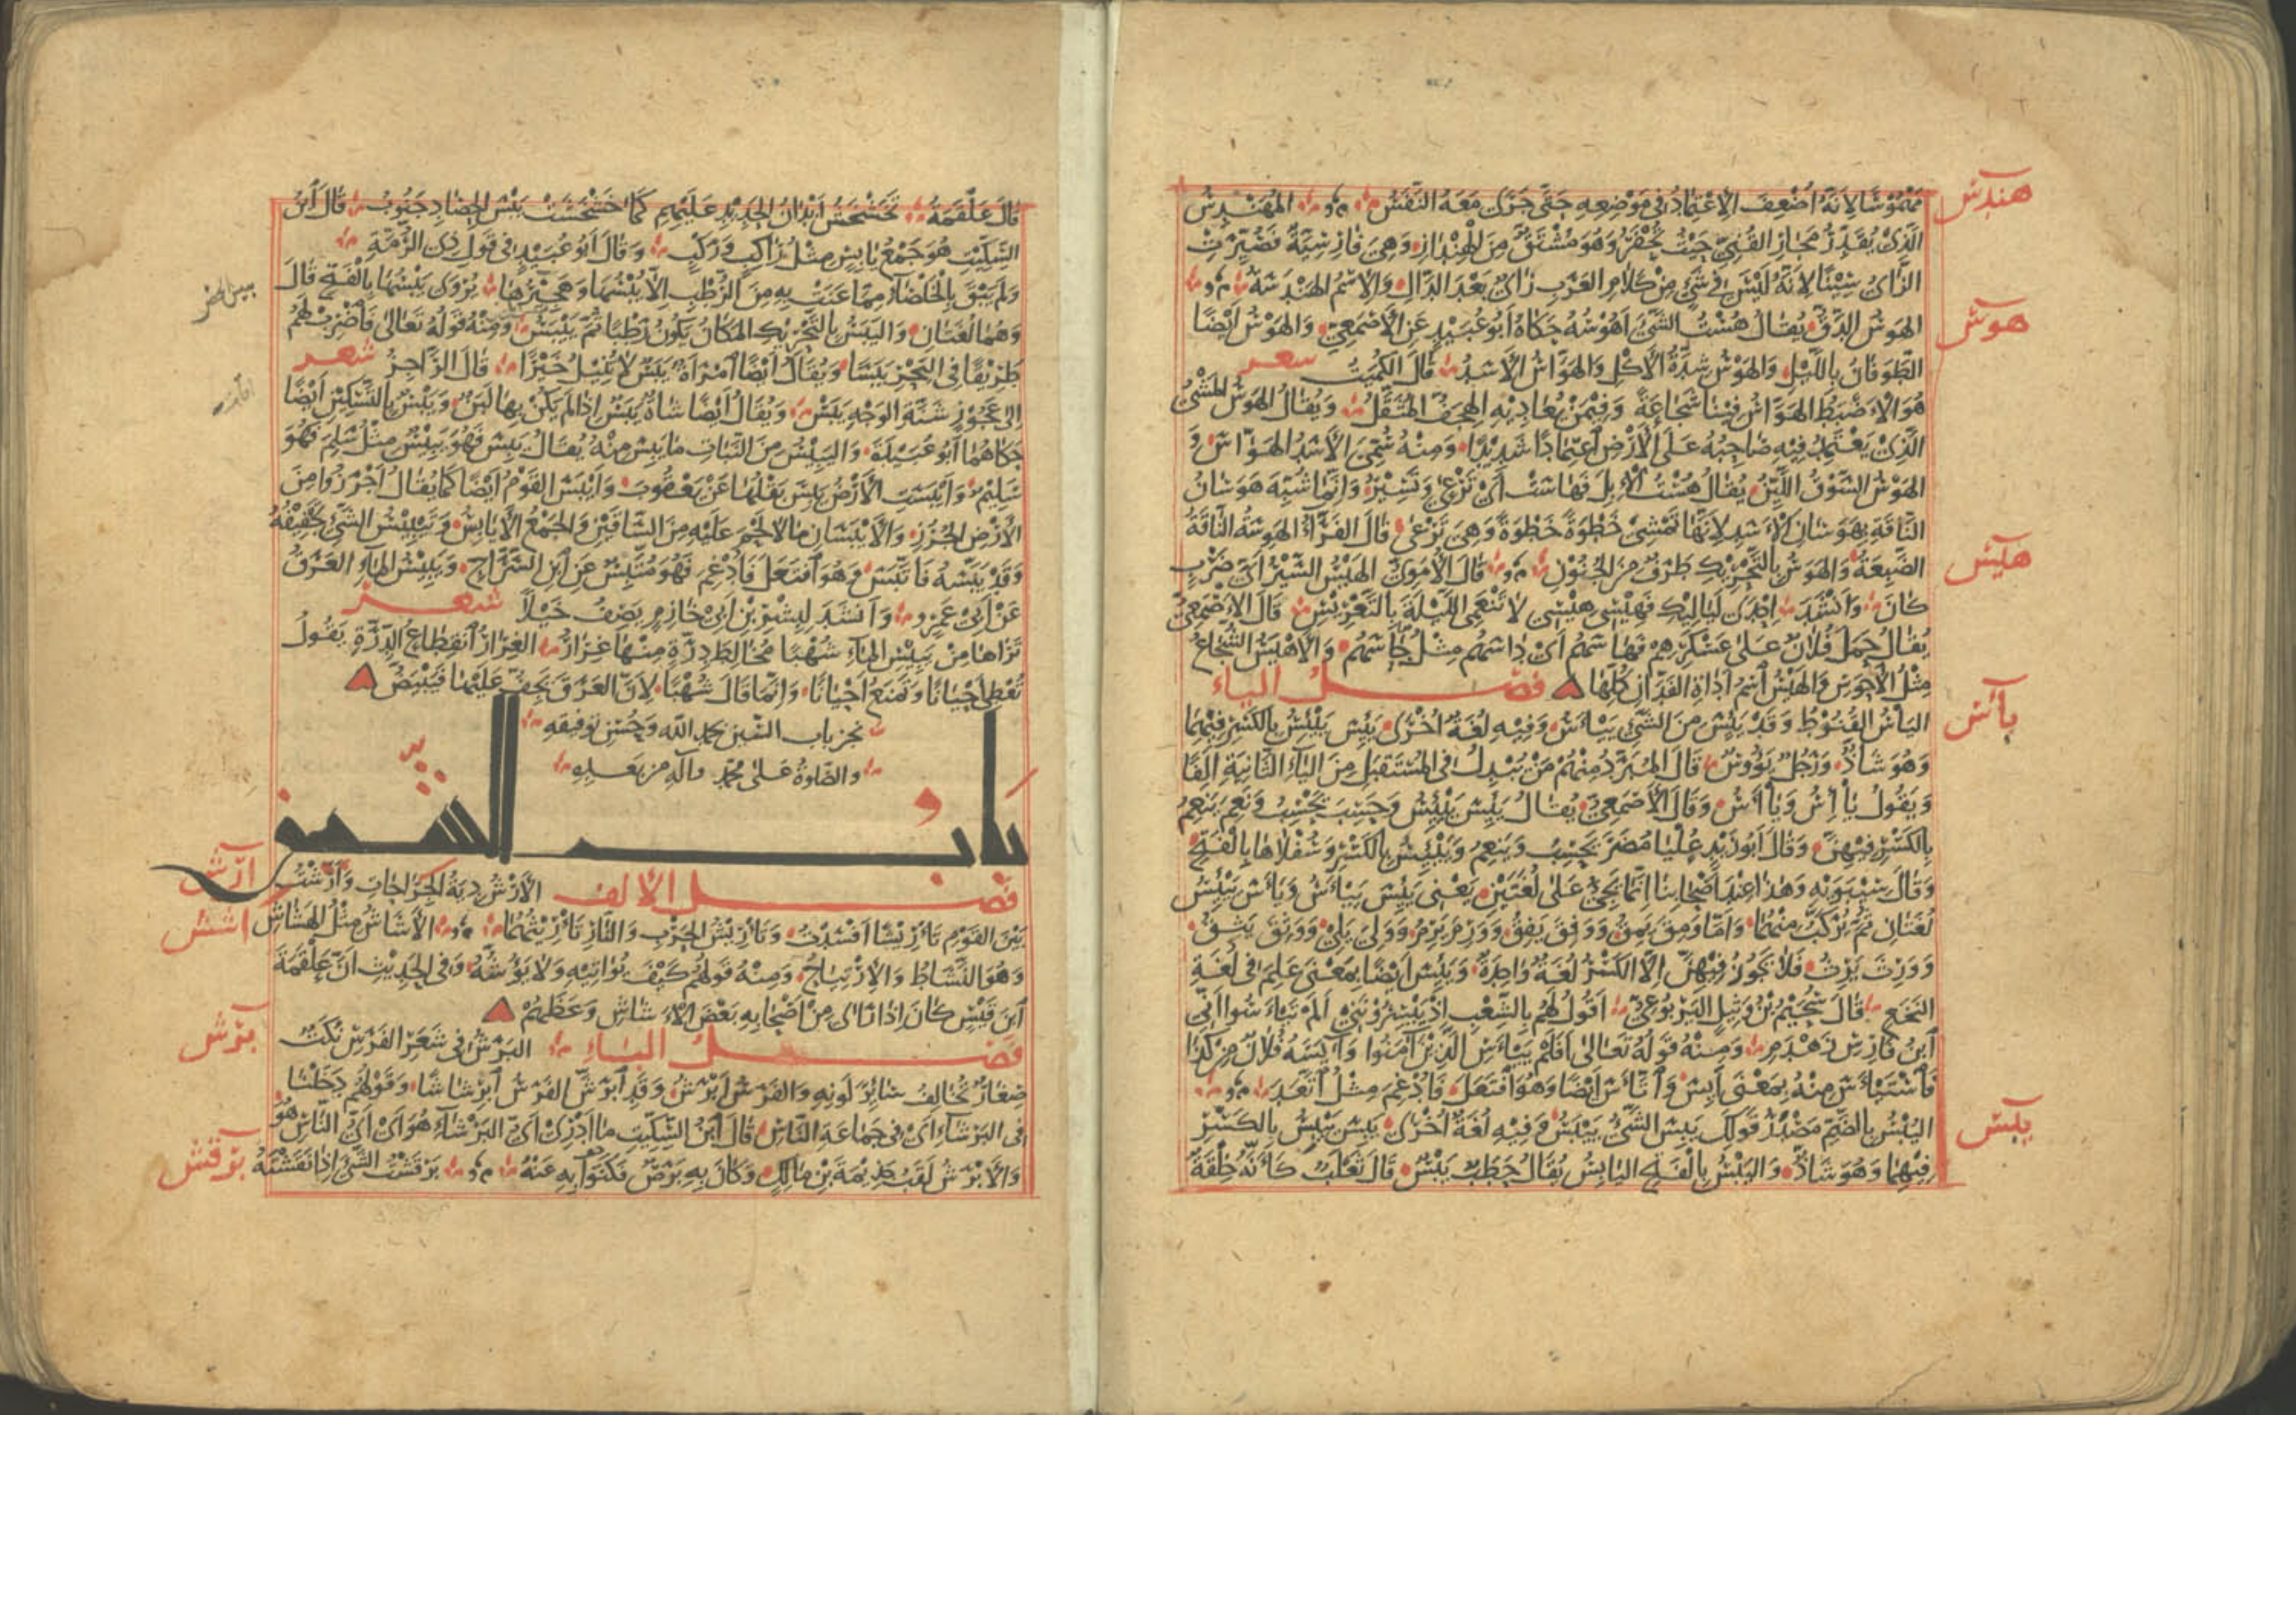 هندس
مَهْمُوسًا لِأَنَّهُ أُضْعِفَ الِاعْتِمَادُ فِي مَوْضِعِهِ حَتَّى جَرَى مَعَهُ النَّفَسُ المُهَنْدِسُ
الَّذِي يُقَدِّرُ مَجَارِيَ القُنِيِّ حَيْثُ تُحْفَرُ وَهُوَ مُشْتَقٌّ مِنَ الهِنْدَازِ وَهِيَ فَارِسِيَّةٌ فَصُيِّرَتِ
الزَّايُ سِينًا لِأَنَّهُ لَيْسَ فِي شَيْءٍ مِنْ كَلَامِ العَرَبِ زَايٌ بَعْدَ الدَّالِ وَالِاسْمُ الهَنْدَسَةُ
هوس
الهَوْسُ الدَّقُّ يُقَالُ هُسْتُ الشَّيْءَ أَهُوسُهُ حَكَاهُ أَبُو عُبَيْدٍ عَنِ الأَصْمَعِيِّ وَالهَوْسُ أَيْضًا
الطَّوَفَانُ بِاللَّيْلِ وَالهَوْسُ شِدَّةُ الأَكْلِ وَالهَوَّاسُ الأَسَدُ قَالَ الكُمَيْتُ شعر
هُوَ الأَضْبَطُ الهَوَّاسُ فِينَا شَجَاعَةً وَفِيمَنْ يُعَادِيهِ الهِجَفُّ المُثَقَّلُ وَيُقَالُ الهَوْسُ المَشْيُ
الَّذِي يَعْتَمِدُ فِيهِ صَاحِبُهُ عَلَى الأَرْضِ اعْتِمَادًا شَدِيدًا وَمِنْهُ سُمِّيَ الأَسَدُ الهَوَّاسَ وَ
الهَوْسُ السَّوْقُ اللَّيِّنُ يُقَالُ هُسْتُ الإِبِلَ فَهَاسَتْ أَيْ تَرْعَى وَتَسِيرُ وَإِنَّمَا شُبِّهَ هَوَسَانُ
النَّاقَةِ بِهَوَسَانِ الأَسَدِ لِأَنَّهَا تَمْشِي خُطْوَةً خُطْوَةً وَهِيَ تَرْعَى قَالَ الفَرَّاءُ الهَوِسَةُ النَّاقَةُ
هيس
الضَّبِعَةُ وَالهَوَسُ بِالتَّحْرِيكِ طَرَفٌ مِنَ الجُنُونِ قَالَ الأُمَوِيُّ الهَيْسُ السَّيْرُ أَيَّ ضَرْبٍ
كَانَ وَأَنْشَدَ إِحْدَى لَيَالِيكِ فَهِيسِي هِيسِي لَا تَنْعَمِي اللَّيْلَةَ بِالتَّعْرِيسِ قَالَ الأَصْمَعِيُّ
يُقَالُ حَمَلَ فُلَانٌ عَلَى عَسْكَرِهِمْ فَهَاسَهُمْ أَيْ دَاسَهُمْ مِثْلُ حَاسَهُمْ وَالأَهْيَسُ الشُّجَاعُ
مِثْلُ الأَحْوَسِ وَالهَيْسُ اسْمُ أَدَاةِ الفَدَّانِ كُلِّهَا فصل الياء
يأس
اليَأْسُ القُنُوطُ وَقَدْ يَئِسَ مِنَ الشَّيْءِ يَيْأَسُ وَفِيهِ لُغَةٌ أُخْرَى يَئِسَ يَيْئِسُ بِالكَسْرِ فِيهِمَا
وَهُوَ شَاذٌّ وَرَجُلٌ يَؤُوسٌ قَالَ المُبَرِّدُ مِنْهُمْ مَنْ يُبْدِلُ فِي المُسْتَقْبَلِ مِنَ اليَاءِ الثَّانِيَةِ أَلِفًا
وَيَقُولُ يَائِسُ وَيَاأَسُ وَقَالَ الأَصْمَعِيُّ يُقَالُ يَئِسَ يَيْئِسُ وَحَسِبَ يَحْسِبُ وَنَعِمَ يَنْعِمُ
بِالكَسْرِ فِيهِنَّ وَقَالَ أَبُو زَيْدٍ عُلْيَا مُضَرَ يَحْسِبُ وَيَنْعِمُ وَيَيْئِسُ بِالكَسْرِ وَسُفْلَاهَا بِالفَتْحِ
وَقَالَ سِيبَوَيْهِ وَهَذَا عِنْدَ أَصْحَابِنَا إِنَّمَا يَجِيءُ عَلَى لُغَتَيْنِ يَعْنِي يَئِسَ يَيْأَسُ وَيَأَسَ يَيْئِسُ
لُغَتَانِ ثُمَّ يُرَكَّبُ مِنْهُمَا وَأَمَّا وَمِقَ يَمِقُ وَوَفِقَ يَفِقُ وَوَرِمَ يَرِمُ وَوَلِيَ يَلِي وَوَثِقَ يَثِقُ
وَوَرِثَ يَرِثُ فَلَا يَجُوزُ فِيهِنَّ إِلَّا الكَسْرُ لُغَةٌ وَاحِدَةٌ وَيَئِسَ أَيْضًا بِمَعْنَى عَلِمَ فِي لُغَةِ
النَّخَعِ قَالَ سُحَيْمُ بْنُ وَثِيلٍ اليَرْبُوعِيُّ أَقُولُ لَهُمْ بِالشِّعْبِ إِذْ يَيْسِرُونَنِي أَلَمْ تَيْأَسُوا أَنِّي
ابْنُ فَارِسِ زَهْدَمِ وَمِنْهُ قَوْلُهُ تَعَالَى أَفَلَمْ يَيْأَسِ الَّذِينَ آمَنُوا وَآيَسَهُ فُلَانٌ مِنْ كَذَا
فَاسْتَيْأَسَ مِنْهُ بِمَعْنَى أَيِسَ وَاتَّأَسَ أَيْضًا وَهُوَ افْتَعَلَ فَأُدْغِمَ مِثْلُ اتَّعَدَ
يبس
اليُبْسُ بِالضَّمِّ مَصْدَرُ قَوْلِكَ يَبِسَ الشَّيْءُ يَيْبَسُ وَفِيهِ لُغَةٌ أُخْرَى يَبِسَ يَيْبِسُ بِالكَسْرِ
فِيهِمَا وَهُوَ شَاذٌّ وَاليَبْسُ بِالفَتْحِ اليَابِسُ يُقَالُ حَطَبٌ يَبْسٌ قَالَ ثَعْلَبٌ كَأَنَّهُ خِلْقَةٌ
قَالَ عَلْقَمَةُ تُخَشْخِشُ أَبْدَانُ الحَدِيدِ عَلَيْهِمِ كَمَا خَشْخَشَتْ يَبْسَ الحَصَادِ جَنُوبُ قَالَ ابْنُ
السِّكِّيتِ هُوَ جَمْعُ يَابِسٍ مِثْلُ رَاكِبٍ وَرَكْبٍ وَقَالَ أَبُو عُبَيْدٍ فِي قَوْلِ ذِي الرُّمَّةِ
وَلَمْ يَبْقَ بِالخَلْصَاءِ مِمَّا عَنَتْ بِهِ مِنَ الرُّطْبِ إِلَّا يُبْسُهَا وَهَجِيرُهَا يُرْوَى يَبْسُهَا بِالفَتْحِ قَالَ
وَهُمَا لُغَتَانِ وَاليَبَسُ بِالتَّحْرِيكِ المَكَانُ يَكُونُ رَطْبًا ثُمَّ يَيْبَسُ وَمِنْهُ قَوْلُهُ تَعَالَى فَاضْرِبْ لَهُمْ
طَرِيقًا فِي البَحْرِ يَبَسًا وَيُقَالُ أَيْضًا امْرَأَةٌ يَبَسٌ لَا تُنِيلُ خَيْرًا قَالَ الرَّاجِزُ شعر
إِلَى عَجُوزٍ شَنَّةِ الوَجْهِ يَبَسْ وَيُقَالُ أَيْضًا شَاةٌ يَبَسٌ إِذَا لَمْ يَكُنْ بِهَا لَبَنٌ وَيَبْسٌ بِالتَّسْكِينِ أَيْضًا
حَكَاهُمَا أَبُو عُبَيْدَةَ وَاليَبِيسُ مِنَ النَّبَاتِ مَا يَبِسَ مِنْهُ يُقَالُ يَبِسَ فَهُوَ يَبِيسٌ مِثْلُ سَلِمَ فَهُوَ
سَلِيمٌ وَأَيْبَسَتِ الأَرْضُ يَبِسَ بَقْلُهَا عَنْ يَعْقُوبَ وَأَيْبَسَ القَوْمُ أَيْضًا كَمَا يُقَالُ أَجْرَزُوا مِنَ
الأَرْضِ الجُرُزِ وَالأَيْبَسَانِ مَا لَا لَحْمَ عَلَيْهِ مِنَ السَّاقَيْنِ وَالجَمْعُ الأَيَابِسُ وَتَيْبِيسُ الشَّيْءِ تَجْفِيفُهُ
وَقَدْ يَبَّسَهُ فَاتَّبَسَ وَهُوَ افْتَعَلَ فَأُدْغِمَ فَهُوَ مُتَّبِسٌ عَنِ ابْنِ السَّرَّاجِ وَيَبِيسُ المَاءِ العَرَقُ
عَنْ أَبِي عَمْرٍو وَأَنْشَدَ لِبِشْرِ بْنِ أَبِي خَازِمٍ يَصِفُ خَيْلًا شعر
تَرَاهَا مِنْ يَبِيسِ المَاءِ شُهْبًا مُخَالِطَ دِرَّةٍ مِنْهَا غِرَارُ الغِرَارُ انْقِطَاعُ الدِّرَّةِ يَقُولُ
تُعْطِي أَحْيَانًا وَتَمْنَعُ أَحْيَانًا وَإِنَّمَا قَالَ شُهْبًا لِأَنَّ العَرَقَ يَجِفُّ عَلَيْهَا فَيَبْيَضُّ
نجز باب السين بحمد الله وحسن توفيقه
والصلوة على محمد وآله من بعده
باب الشين
فصل الألف الأَرْشُ دِيَةُ الجِرَاحَاتِ وَأَرَّشْتُ
أرش
بَيْنَ القَوْمِ تَأْرِيشًا أَفْسَدْتُ وَتَأْرِيشُ الحَرْبِ وَالنَّارِ تَأْرِيثُهُمَا الأَشَاشُ مِثْلُ الهَشَاشِ
أشش
وَهُوَ النَّشَاطُ وَالِارْتِيَاحُ وَمِنْهُ قَوْلُهُمْ كَيْفَ تُؤَاتِيهِ وَلَا تَؤُشُّهُ وَفِي الحَدِيثِ أَنَّ عَلْقَمَةَ
ابْنَ قَيْسٍ كَانَ إِذَا رَأَى مِنْ أَصْحَابِهِ بَعْضَ الأَشَاشِ وَعَظَهُمْ
برش
فصل الباء البَرَشُ فِي شَعَرِ الفَرَسِ نُكَتٌ
صِغَارٌ تُخَالِفُ سَائِرَ لَوْنِهِ وَالفَرَسُ أَبْرَشُ وَقَدِ ابْرَشَّ الفَرَسُ ابْرِشَاشًا وَقَوْلُهُمْ دَخَلْنَا
فِي البَرْشَاءِ أَيْ فِي جَمَاعَةِ النَّاسِ قَالَ ابْنُ السِّكِّيتِ مَا أَدْرِي أَيُّ البَرْشَاءِ هُوَ أَيْ أَيُّ النَّاسِ هُوَ
وَالأَبْرَشُ لَقَبُ جَذِيمَةَ بْنِ مَالِكٍ وَكَانَ بِهِ بَرَصٌ فَكَنَوْا بِهِ عَنْهُ بَرْقَشْتُ الشَّيْءَ إِذَا نَقَشْتَهُ
برقش